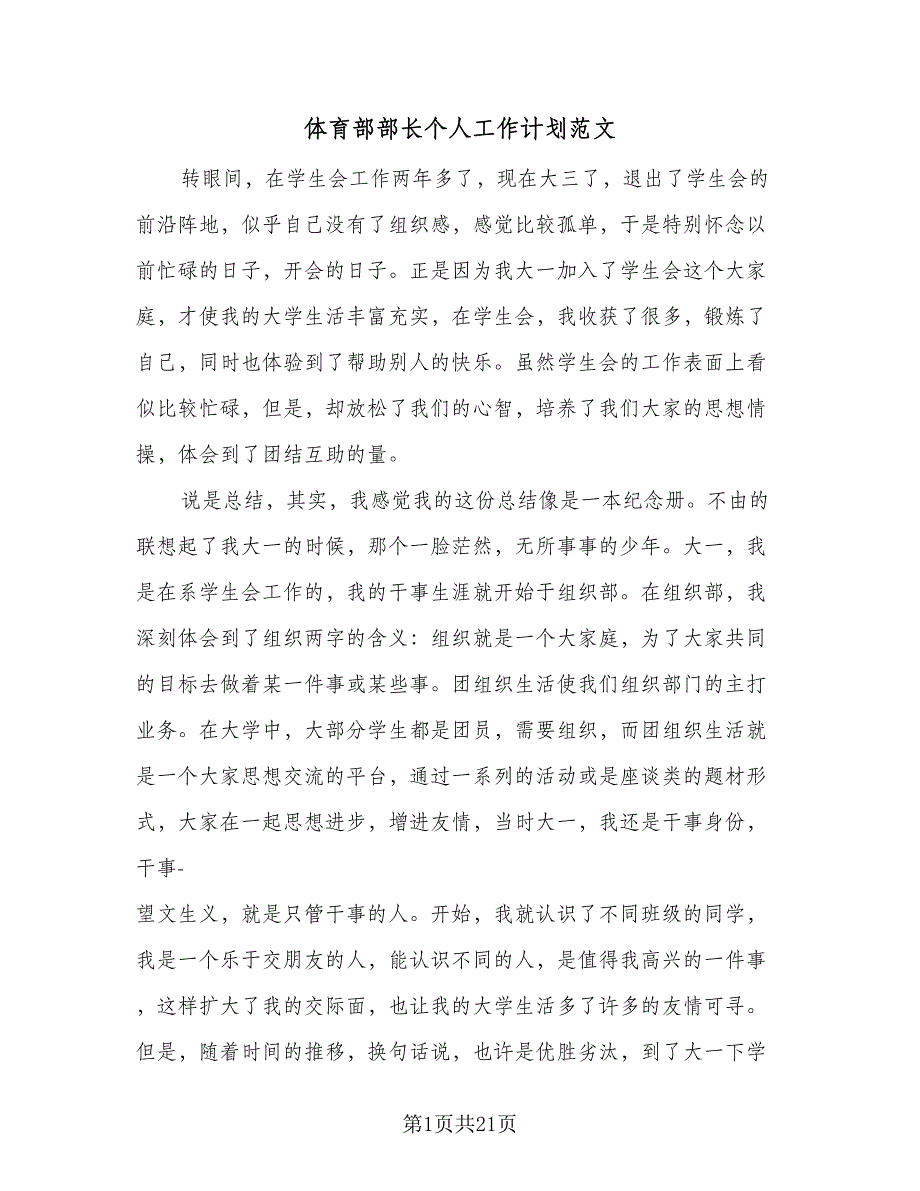 体育部部长个人工作计划范文
转眼间，在学生会工作两年多了，现在大三了，退出了学生会的
前沿阵地，似乎自己没有了组织感，感觉比较孤单，于是特别怀念以
前忙碌的日子，开会的日子。正是因为我大一加入了学生会这个大家
庭，才使我的大学生活丰富充实，在学生会，我收获了很多，锻炼了
自己，同时也体验到了帮助别人的快乐。虽然学生会的工作表面上看
似比较忙碌，但是，却放松了我们的心智，培养了我们大家的思想情
操，体会到了团结互助的量。
说是总结，其实，我感觉我的这份总结像是一本纪念册。不由的
联想起了我大一的时候，那个一脸茫然，无所事事的少年。大一，我
是在系学生会工作的，我的干事生涯就开始于组织部。在组织部，我
深刻体会到了组织两字的含义：组织就是一个大家庭，为了大家共同
的目标去做着某一件事或某些事。团组织生活使我们组织部门的主打
业务。在大学中，大部分学生都是团员，需要组织，而团组织生活就
是一个大家思想交流的平台，通过一系列的活动或是座谈类的题材形
式，大家在一起思想进步，增进友情，当时大一，我还是干事身份，
干事-
望文生义，就是只管干事的人。开始，我就认识了不同班级的同学，
我是一个乐于交朋友的人，能认识不同的人，是值得我高兴的一件事
，这样扩大了我的交际面，也让我的大学生活多了许多的友情可寻。
但是，随着时间的推移，换句话说，也许是优胜劣汰，到了大一下学
第1页共21页